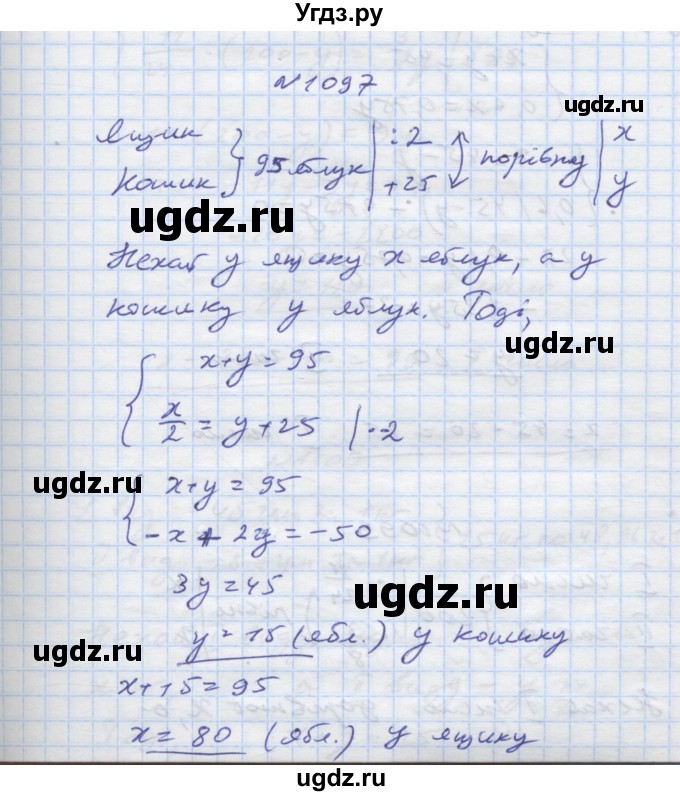 Угдз.ру
№1097
Ящик
Кошик } 95 яблук | :2 +25 порівну | x y
ugdz.ru
ugdz.ru
Нехай у ящику x яблук, а у
кошику y яблук. Тоді,
ugdz.ru
{ x+y=95
x/2 = y+25 |·2
ugdz.ru
ugdz.ru
{ x+y=95
-x+2y=-50
3y=45
ugdz.ru
y=15 (ябл.) у кошику
ugdz.ru
x+15=95
x=80 (ябл.) у ящику
ugdz.ru
ugdz.ru